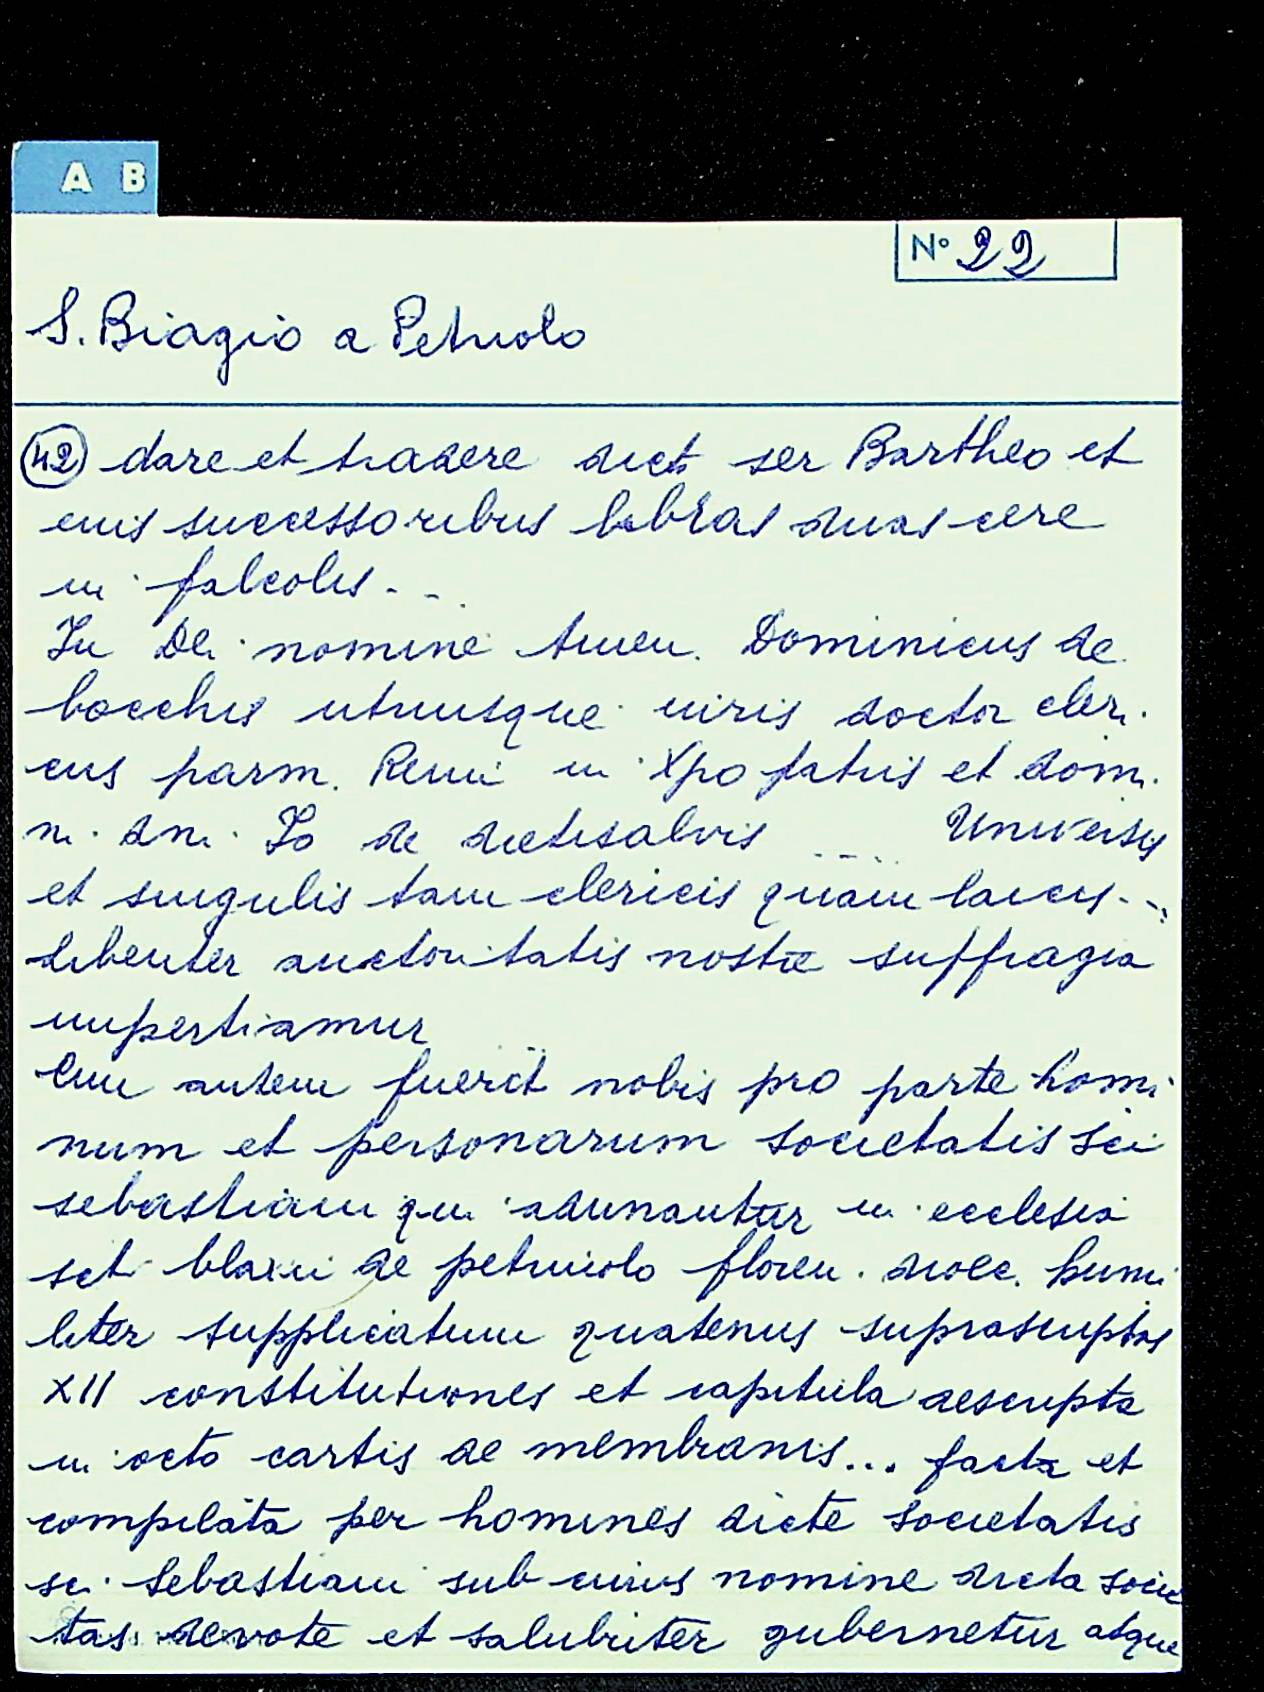 A B
N° 22
S. Biagio a Petriolo
(42) dare et tradere dict ser Bartheo et
eius successoribus libras duas cere
in falcolis...
In Dei nomine Amen. Dominicus de
bocchis utriusque iuris doctor cleri
cus parm. Remi in Xpo patris et domi
ni. dni. Io de dietisalvis .... Universis
et singulis tam clericis quam laicis...
libenter auctoritatis nostre suffragia
impertiamur
Cum autem fuerit nobis pro parte homi
num et personarum societatis sci
sebastiani qui adunantur in ecclesia
sct blaxii de petriuolo floren. dioec. humi
liter supplicatum quatenus suprascriptas
XII constitutiones et capitula descripta
in octo cartis de membranis... facta et
compilata per homines dicte societatis
sci Sebastiani sub cuius nomine dicta socie
tas devote et salubriter gubernetur atque